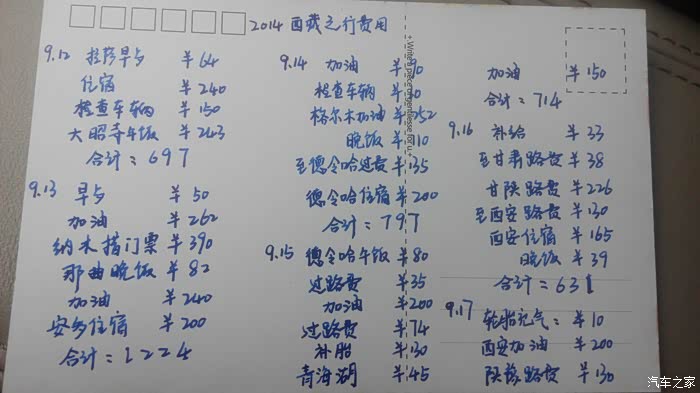 2014西藏之行费用
9.12 拉萨早点 ¥64
住宿 ¥240
检查车辆 ¥150
大昭寺午饭 ¥243
合计:697
9.13 早点 ¥50
加油 ¥262
纳木措门票 ¥390
那曲晚饭 ¥82
加油 ¥240
安多住宿 ¥200
合计:1224
9.14 加油
检查车辆
格尔木加油 ¥252
晚饭 ¥110
至德令哈过费 ¥35
德令哈住宿 ¥200
合计:797
9.15 德令哈午饭 ¥80
过路费 ¥35
加油 ¥200
过路费 ¥74
补胎 ¥130
青海湖 ¥45
加油 ¥150
合计:714
9.16 补给 ¥33
至甘肃路费 ¥38
甘陕路费 ¥226
至西安路费 ¥130
西安住宿 ¥165
晚饭 ¥39
合计:631
9.17 轮胎充气: ¥10
西安加油 ¥200
陕豫路费 ¥130
汽车之家